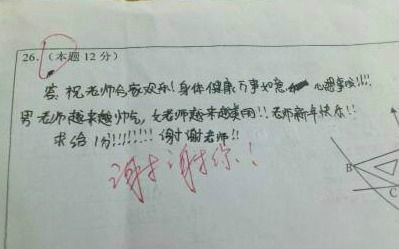 26.(本题 12 分)
答:祝老师合家欢乐!身体健康,万事如意,心想事成!!!!
男老师越来越帅气,女老师越来越美丽!!老师新年快乐!!
求给1分!!!!!!!!谢谢老师!!
谢谢你!!
B
C